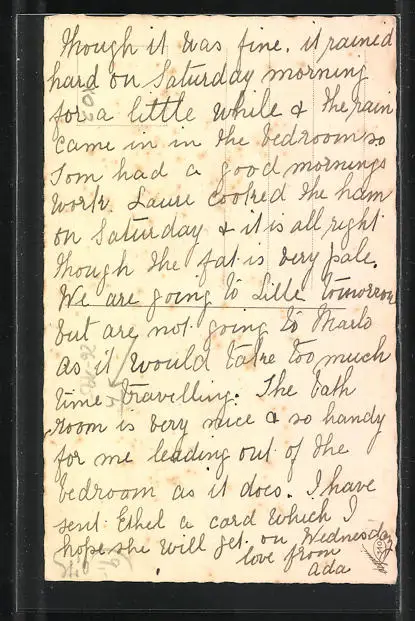 though it was fine. it rained
hard on Saturday morning
for a little while & the rain
came in in the bedroom so
Tom had a good mornings
work. Laurie cooked the ham
on Saturday & it is all right
though the fat is very pale.
We are going to Lille tomorrow
but are not going to Marlo
as it would take too much
time travelling. The bath
room is very nice & so handy
for me leading out of the
bedroom as it does. I have
sent Ethel a card which I
hope she will get on Wednesday
love from
Ada